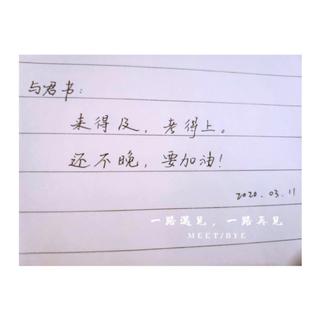 与君书：
来得及，考得上。
还不晚，要加油！
2020.03.11
一路遇见，一路再见
MEET/BYE